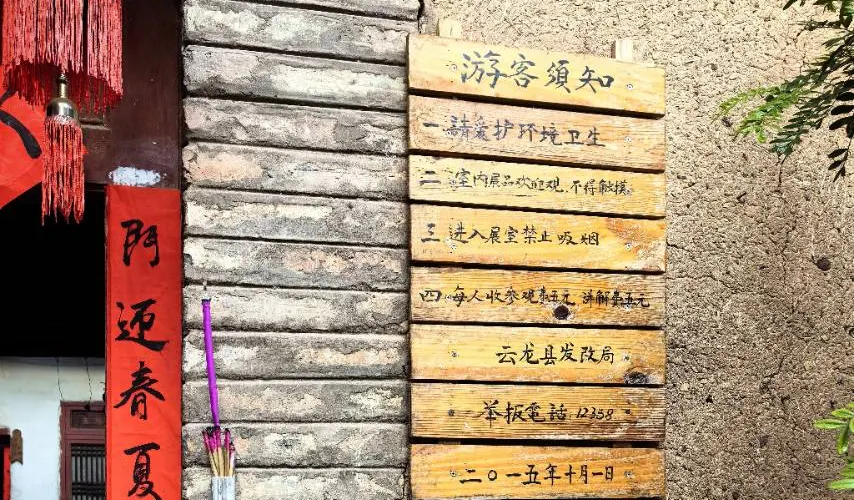 游客須知
一 請爱护环境卫生
二 室内展品欢迎观, 不得触摸
三 进入展室禁止吸烟
四 每人收参观费五元, 讲解费五元
云龙县发改局
举报電話 12358
二〇一五年十月一日
門迎春夏